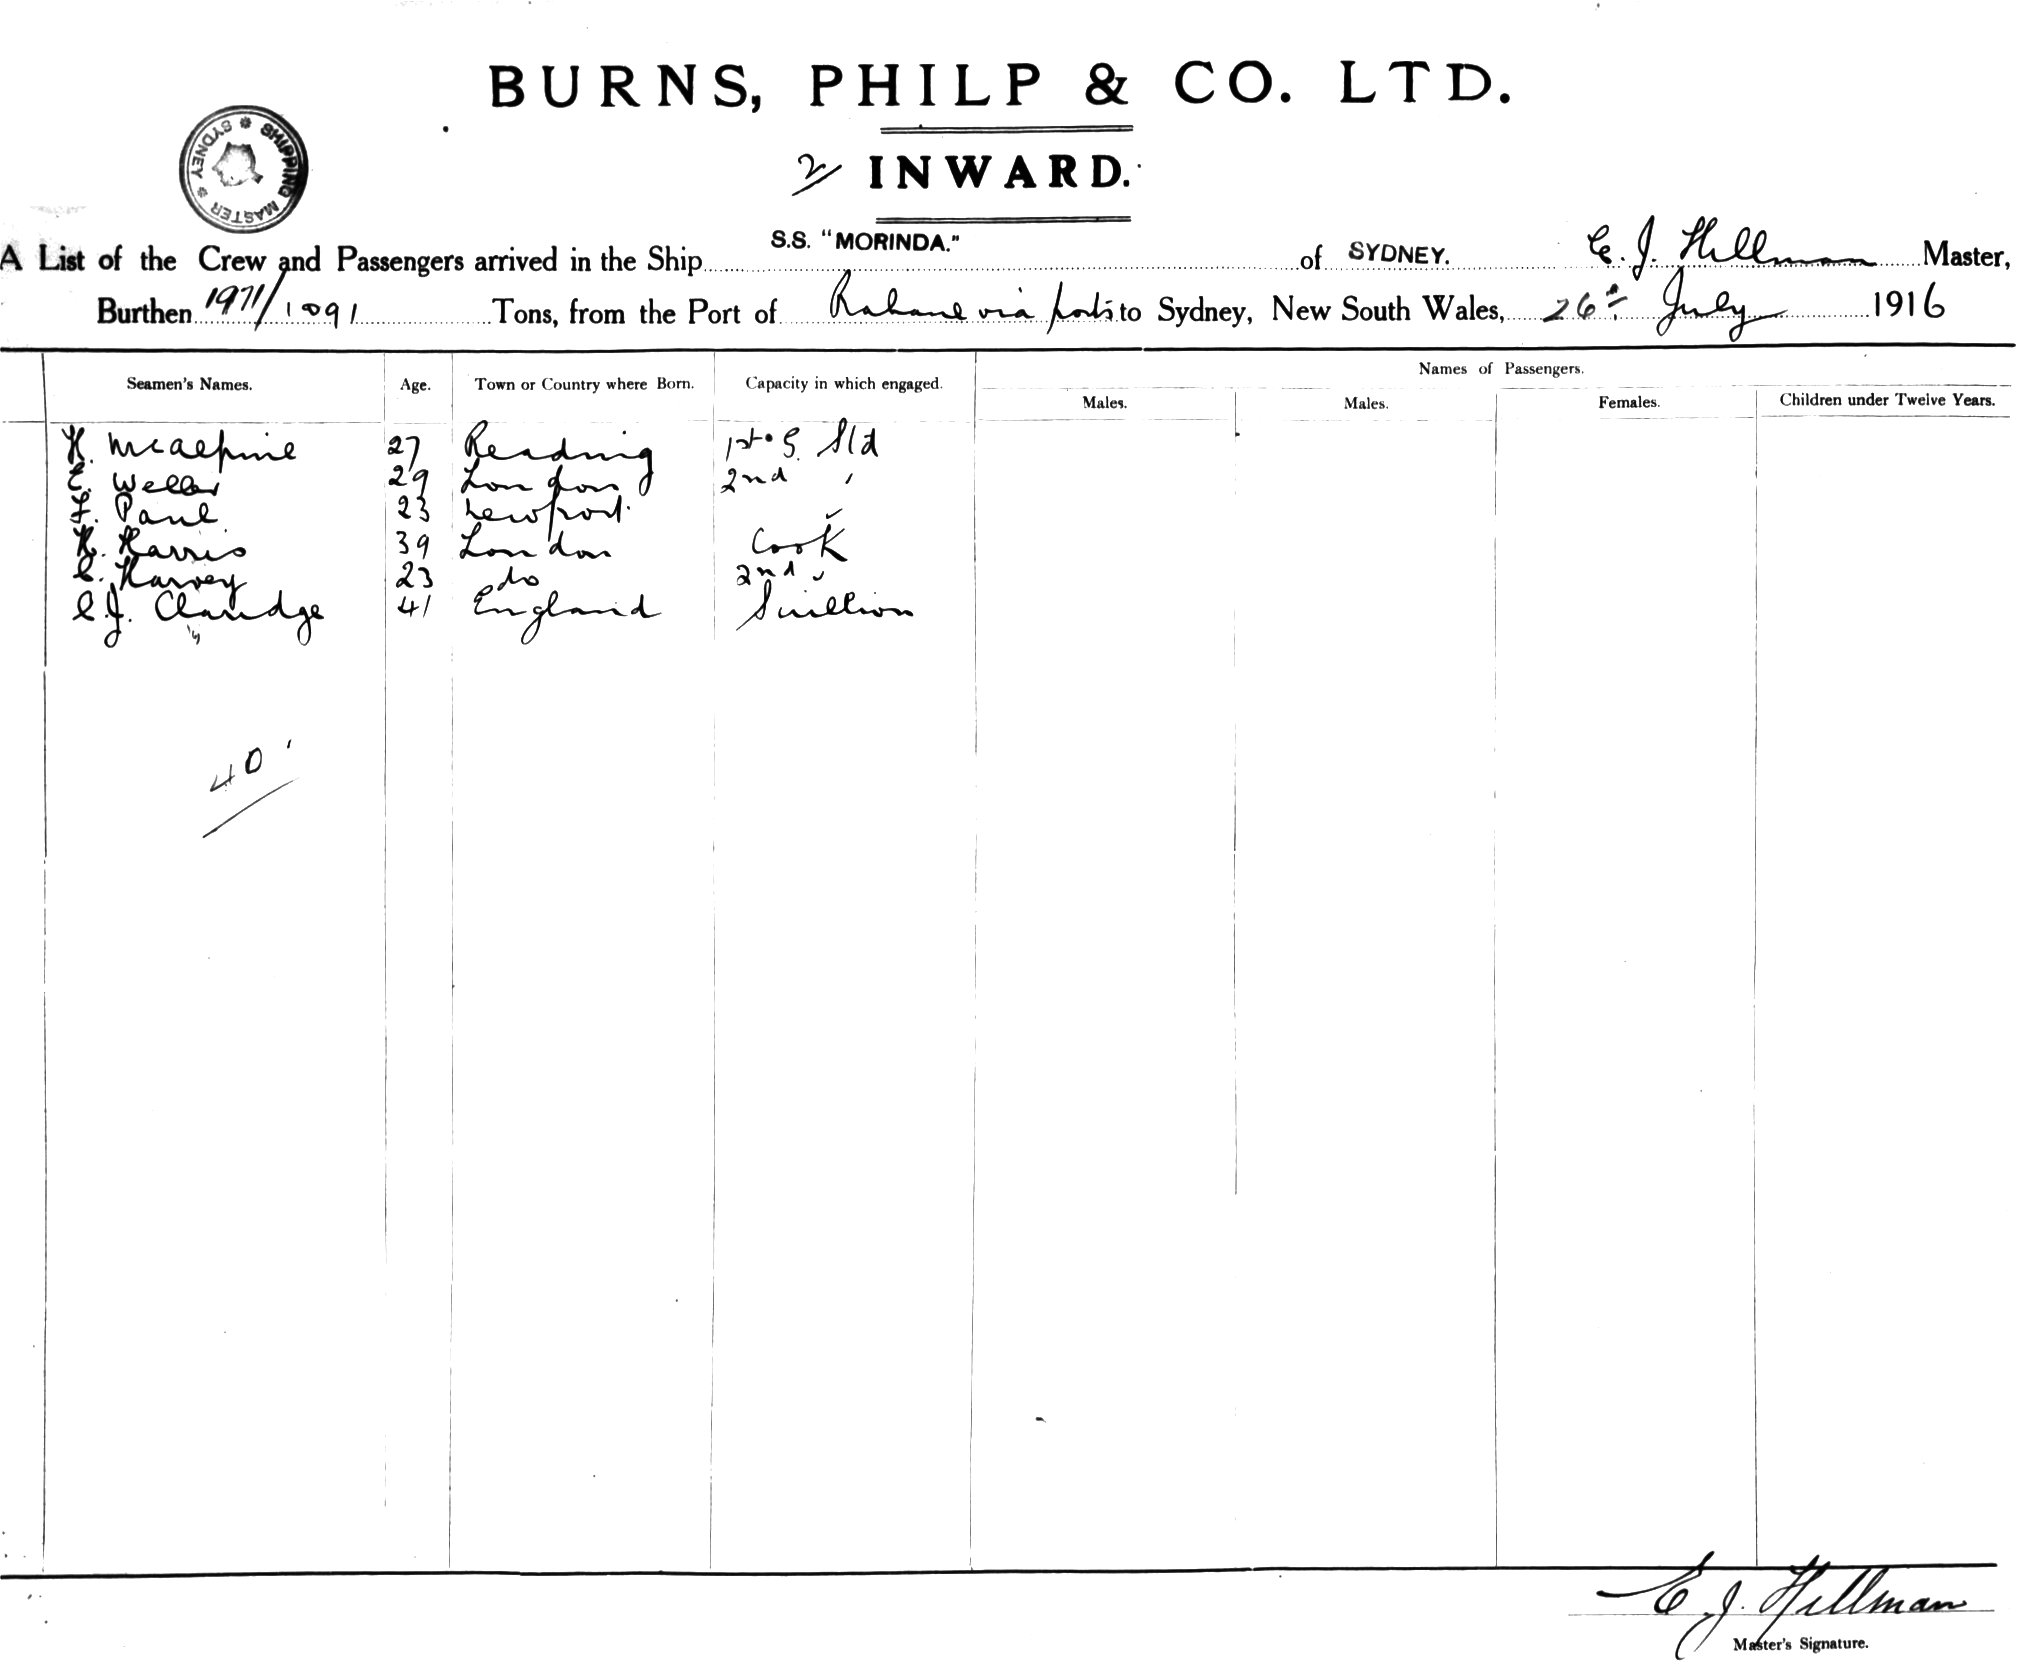 BURNS, PHILP & CO. LTD.
SHIPPING MASTER * SYDNEY *
2/ INWARD.
A List of the Crew and Passengers arrived in the Ship S.S. "MORINDA." of SYDNEY. E. J. Hillman Master,
Burthen 1971/1091 Tons, from the Port of via ports to Sydney, New South Wales, 26th July 1916
Names of Passengers.
Seamen's Names. Age. Town or Country where Born. Capacity in which engaged. Males. Males. Females. Children under Twelve Years.
H. McAlpine 27 Reading 1st S. Std
E. Weller 29 London 2nd "
F. Paul 23 Newport
H. Harris 39 London Cook
C. Harvey 23 do 2nd "
C.J. Claridge 41 England Scullion
40
E. J. Hillman
Master's Signature.